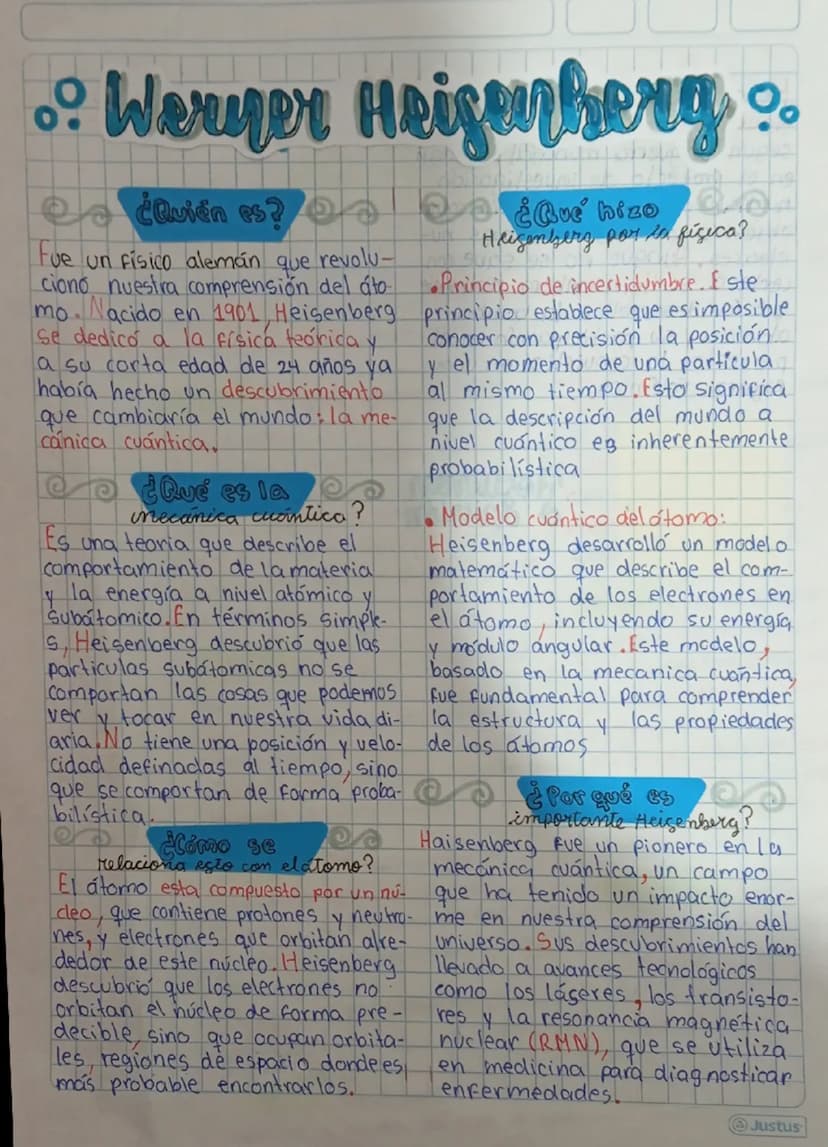 Werner Heisenberg
¿Quién es?
Fue un físico alemán que revolu-
cionó nuestra comprensión del áto-
mo. Nacido en 1901, Heisenberg
se dedicó a la física teórica y
a su corta edad de 24 años ya
había hecho un descubrimiento
que cambiaría el mundo: la me-
cánica cuántica.
¿Qué es la
mecánica cuántica?
Es una teoría que describe el
comportamiento de la materia
y la energía a nivel atómico y
subátomico. En términos simple-
s, Heisenberg descubrió que las
particulas subátomicas no se
comportan las cosas que podemos
ver y tocar en nuestra vida di-
aria. No tiene una posición y velo-
cidad definadas al tiempo, sino
que se comportan de forma proba-
bilística.
¿Cómo se
relaciona esto con el átomo?
El átomo esta compuesto por un nú-
cleo, que contiene protones y neutro-
nes, y electrones que orbitan alre-
dedor de este núcleo. Heisenberg
descubrió que los electrones no
orbitan el núcleo de forma pre-
decible, sino que ocupan orbita-
les, regiones de espacio donde es
más probable encontrarlos.
¿Qué hizo
Heisenberg por la física?
• Principio de incertidumbre. Este
principio establece que es imposible
conocer con precisión la posición
y el momento de una partícula
al mismo tiempo. Esto significa
que la descripción del mundo a
nivel cuóntico es inherentemente
probabilística
• Modelo cuántico del átomo:
Heisenberg desarrolló un modelo
matemático que describe el com-
portamiento de los electrones en
el átomo, incluyendo su energía,
y módulo ángular. Este modelo,
basado en la mecanica cuantica,
fue fundamental para comprender
la estructura y las propiedades
de los átomos
¿Por qué es
importante Heisenberg?
Haisenberg fue un pionero en la
mecánica cuántica, un campo
que ha tenido un impacto enor-
me en nuestra comprensión del
universo. Sus descubrimientos han
llevado a avances tecnológicos
como los láseres, los transisto-
res y la resonancia magnética
nuclear (RMN), que se utiliza
en medicina para diagnosticar
enfermedades.
Justus